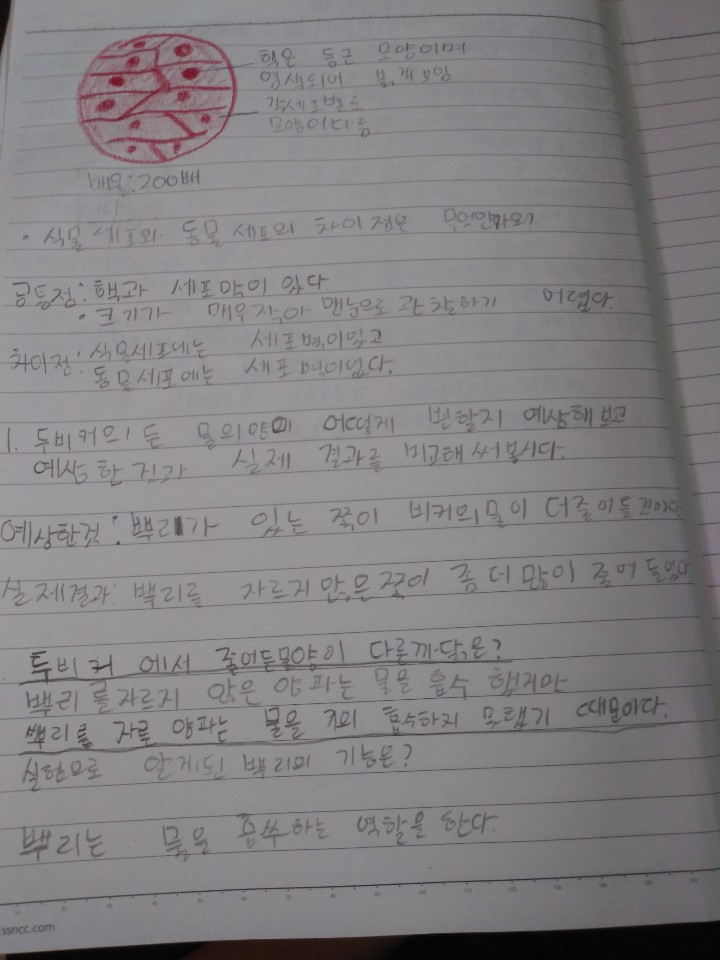 핵은 둥근 모양이며
염색되어 붉게 보임
각세포별로
모양이 다름
배율: 200배
· 식물 세포와 동물 세포의 차이점은 무엇인가요?
공통점: 핵과 세포막이 있다
· 크기가 매우작아 맨눈으로 관찰하기 어렵다.
차이점: 식물세포에는 세포벽이있고
동물세포에는 세포벽이없다.
1. 두비커의 든 물의양이 어떻게 변할지 예상해보고
예상한 것과 실제 결과를 비교해 써 봅시다.
예상한것: 뿌리가 있는 쪽이 비커의물이 더줄어들것이다
실제결과: 뿌리를 자르지 않은쪽이 좀 더 많이 줄어 들었다
두비커 에서 줄어든물양이 다른까닭은?
뿌리를자르지 않은 양파는 물을 흡수 했지만
뿌리를 자른 양파는 물을 거의 흡수하지 못했기 때문이다.
실험으로 알게된 뿌리의 기능은?
뿌리는 물을 흡수하는 역할을 한다.
ssncc.com